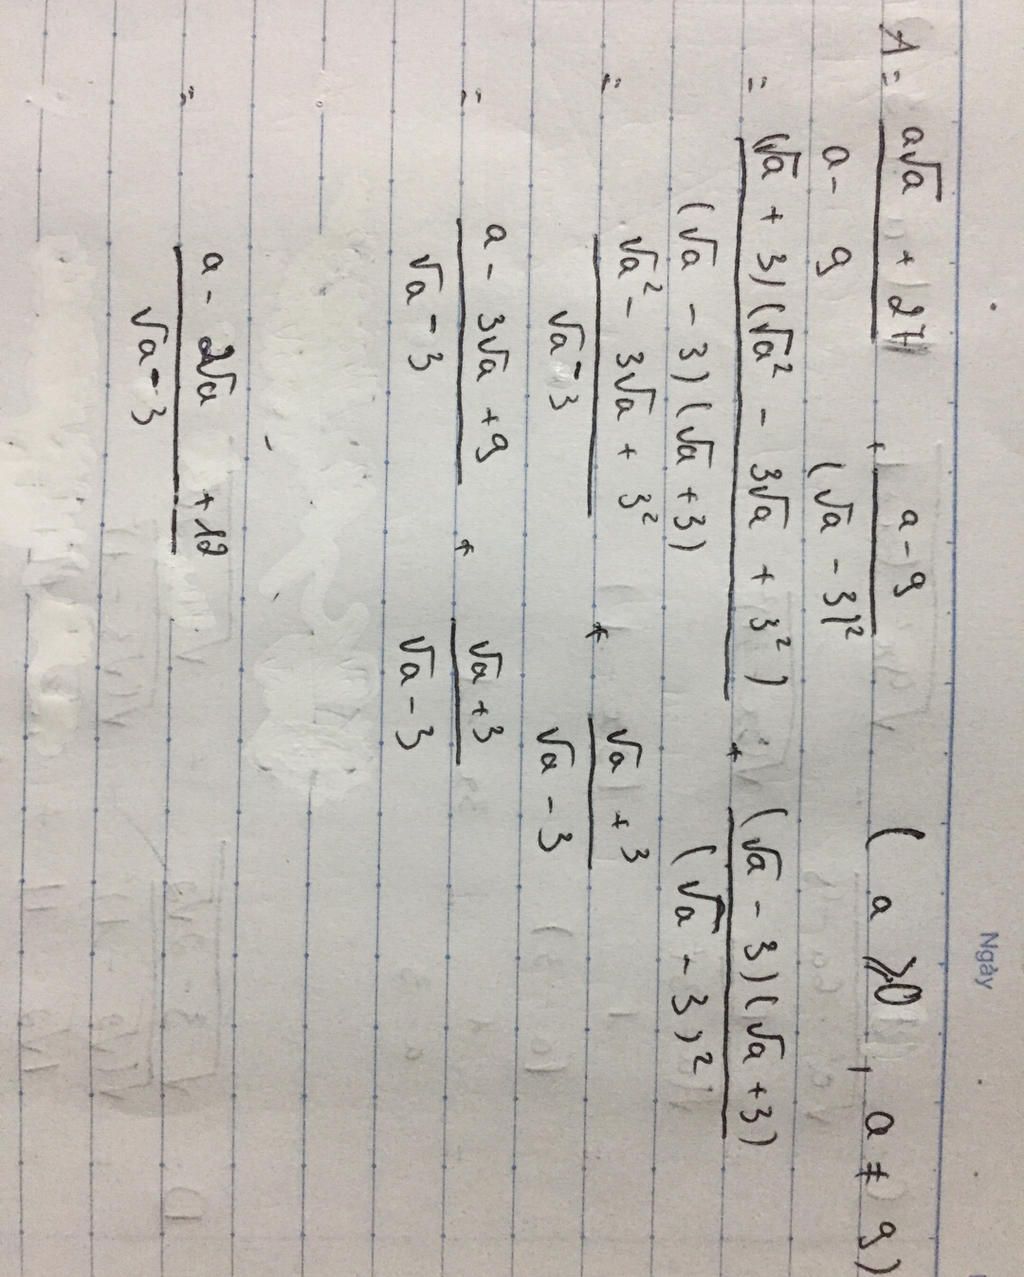 Ngày
A = (a√a + 27)/(a - 9) + (a - 9)/(√a - 3)² ( a ⩾ 0 , a ≠ 9 )
= ((√a + 3)(√a² - 3√a + 3²))/((√a - 3)(√a + 3)) + ((√a - 3)(√a + 3))/(√a - 3)²
= (√a² - 3√a + 3²)/(√a - 3) + (√a + 3)/(√a - 3)
= (a - 3√a + 9)/(√a - 3) + (√a + 3)/(√a - 3)
= (a - 2√a + 12)/(√a - 3)